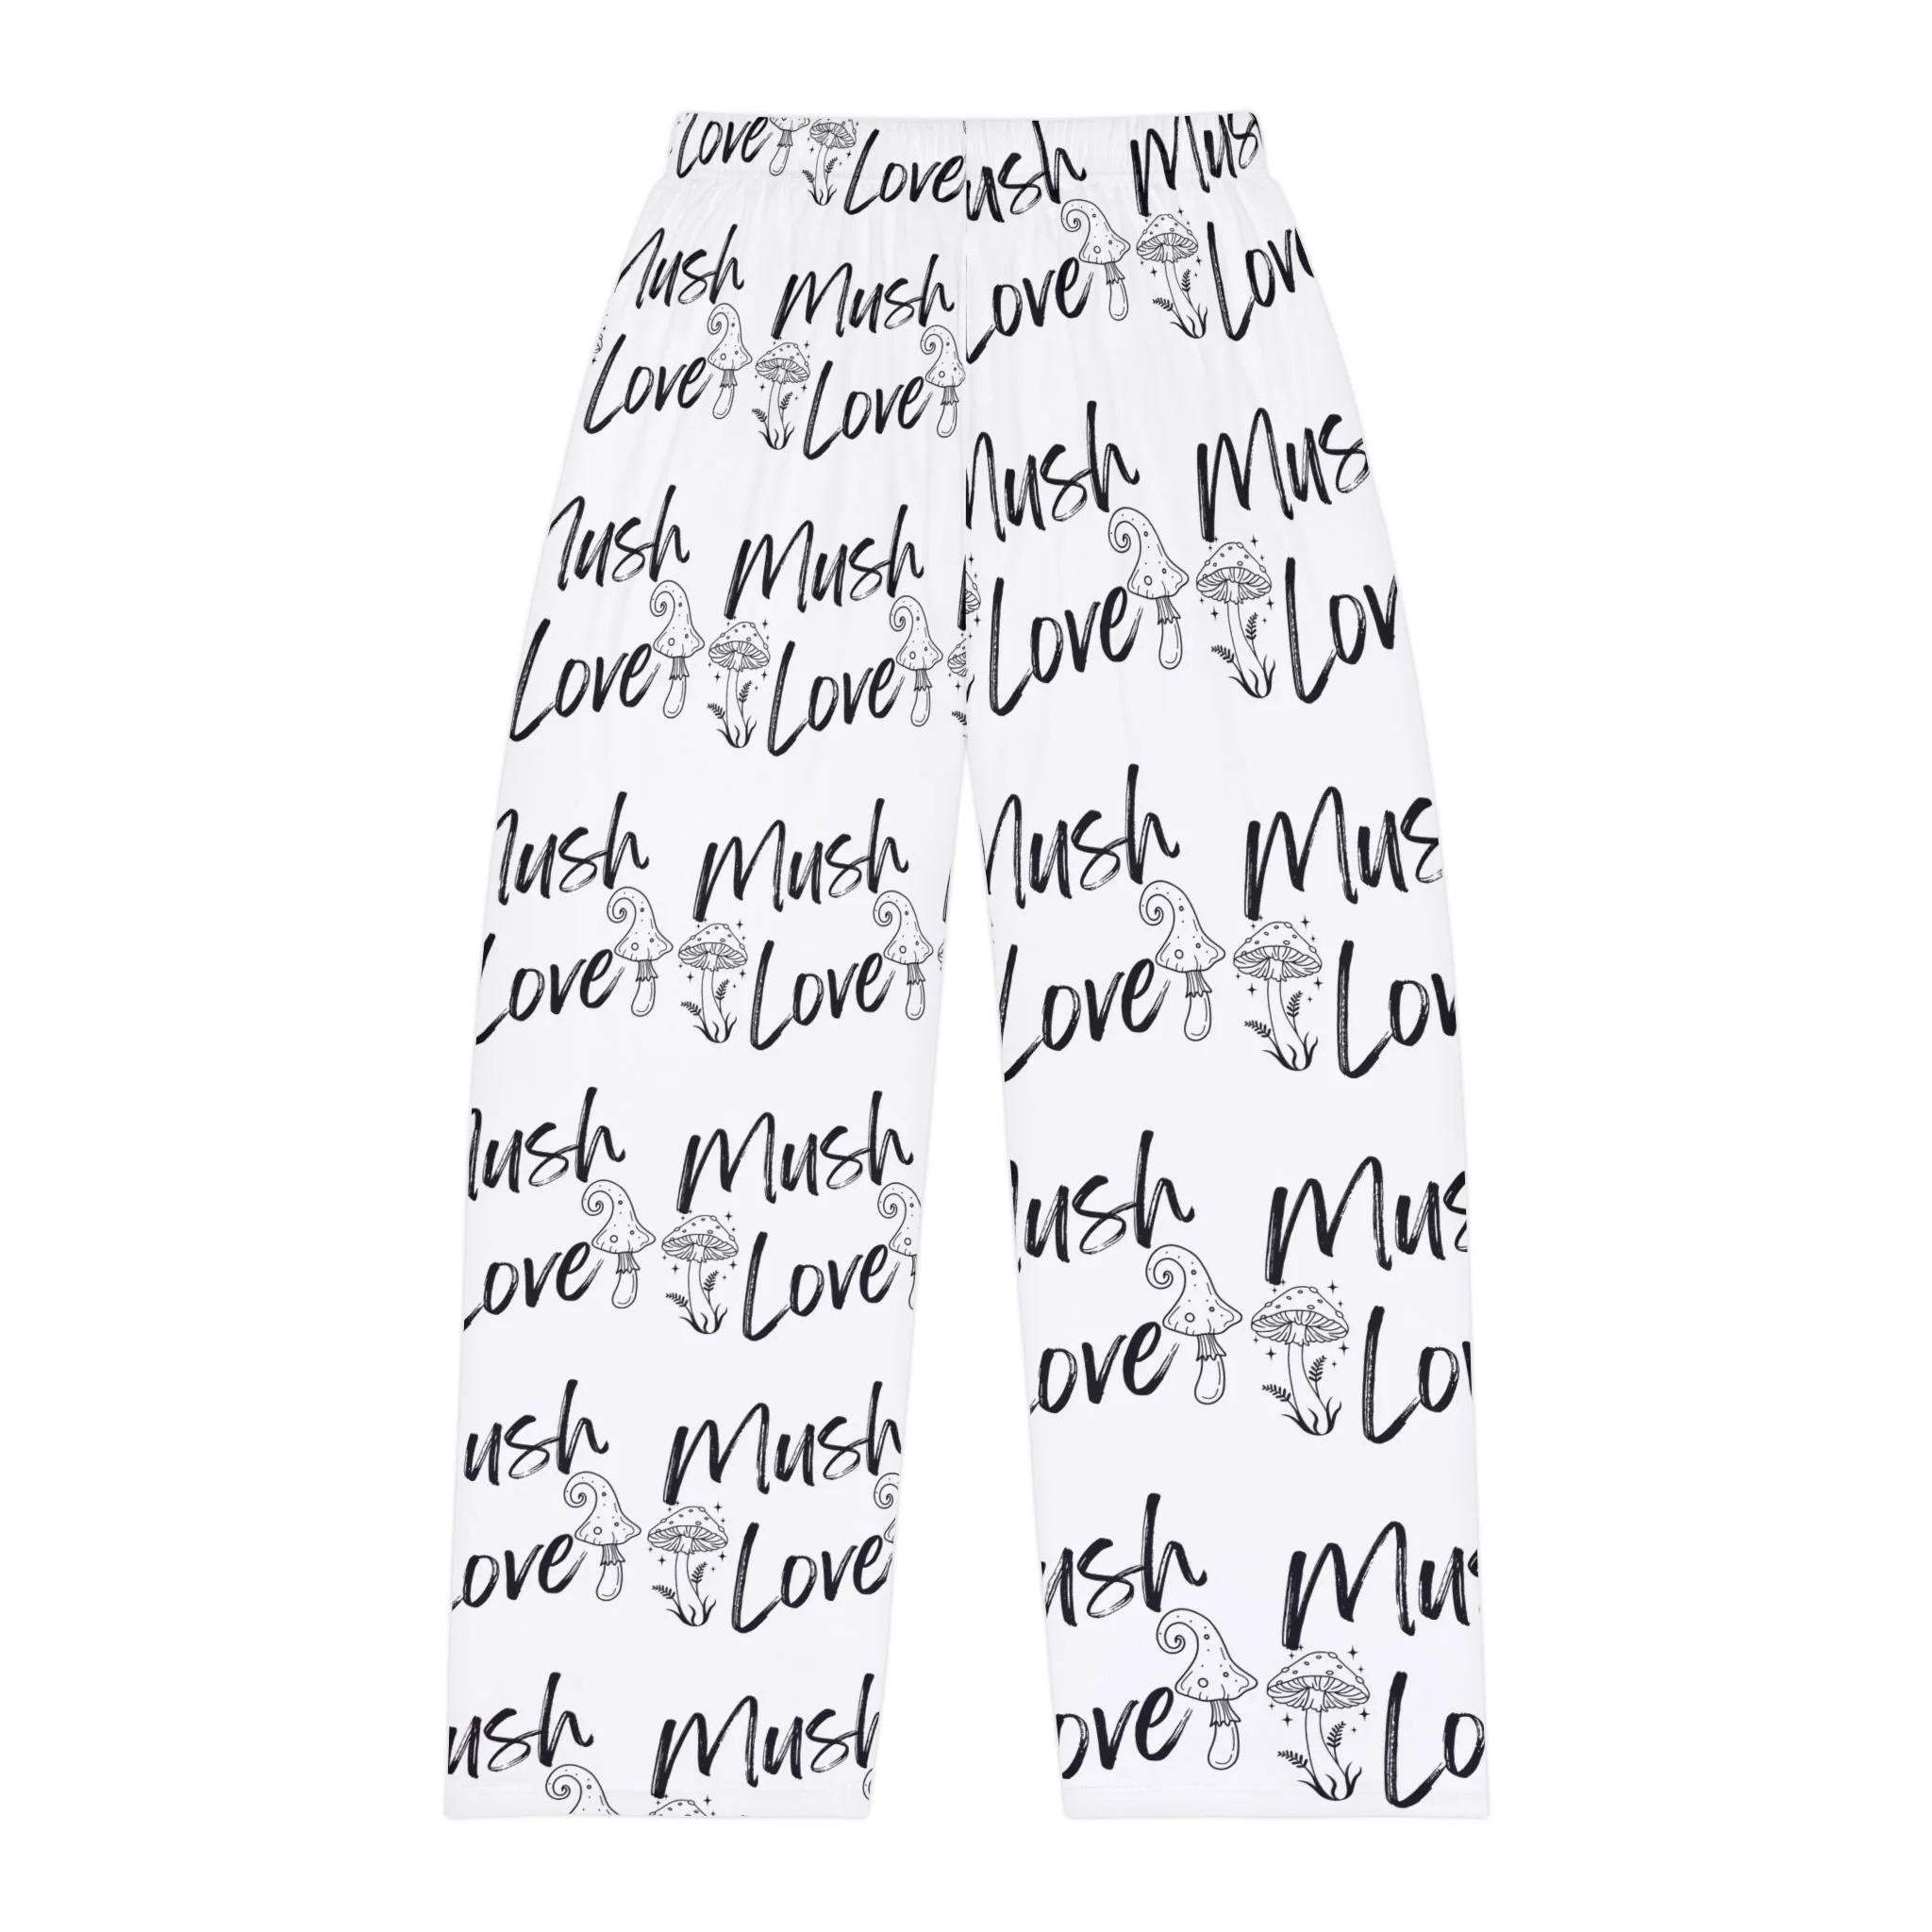 Love Love
Mush Mush
Love Love
Mush Mush
Love Love
Mush Mush
Love Love
Mush Mush
ove Love
ush Mush
ove Love
ush Mush
ush Mus
Love Lov
Mush Mus
Love Lov
Mush Mus
Love Lov
ush Mus
ove Lov
ush Mu
ove Lo